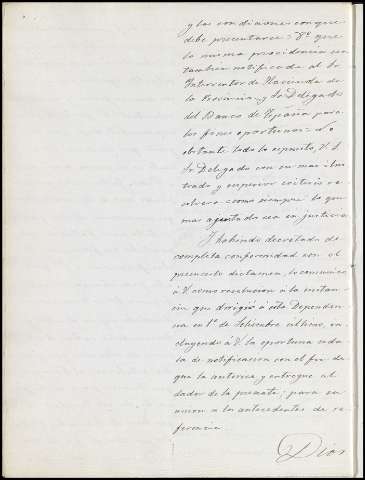 y las condiciones con que
debe presentarse. 8º que
la misma providencia sea
tambien notificada al Sr.
Interventor de Hacienda de
la Provincia, y Sr. Delegado
del Banco de España para
los fines oportunos. No
obstante todo lo expuesto, V. S.
Sr. Delegado con su mas ilus
trado y superior criterio re
solvera como siempre lo que
mas ajustado sea en justicia.
Y habiendo decretado de
completa conformidad con el
preinserto dictamen, lo comunico
á V. como resolucion á la instan
cia que dirigió á esta Dependen
cia en 1º de Setiembre último, in
cluyendo á V. la oportuna cédu
la de notificacion con el fin de
que la autorice y entregue al
dador de la presente, para su
union a los antecedentes de re
ferencia.
Dios